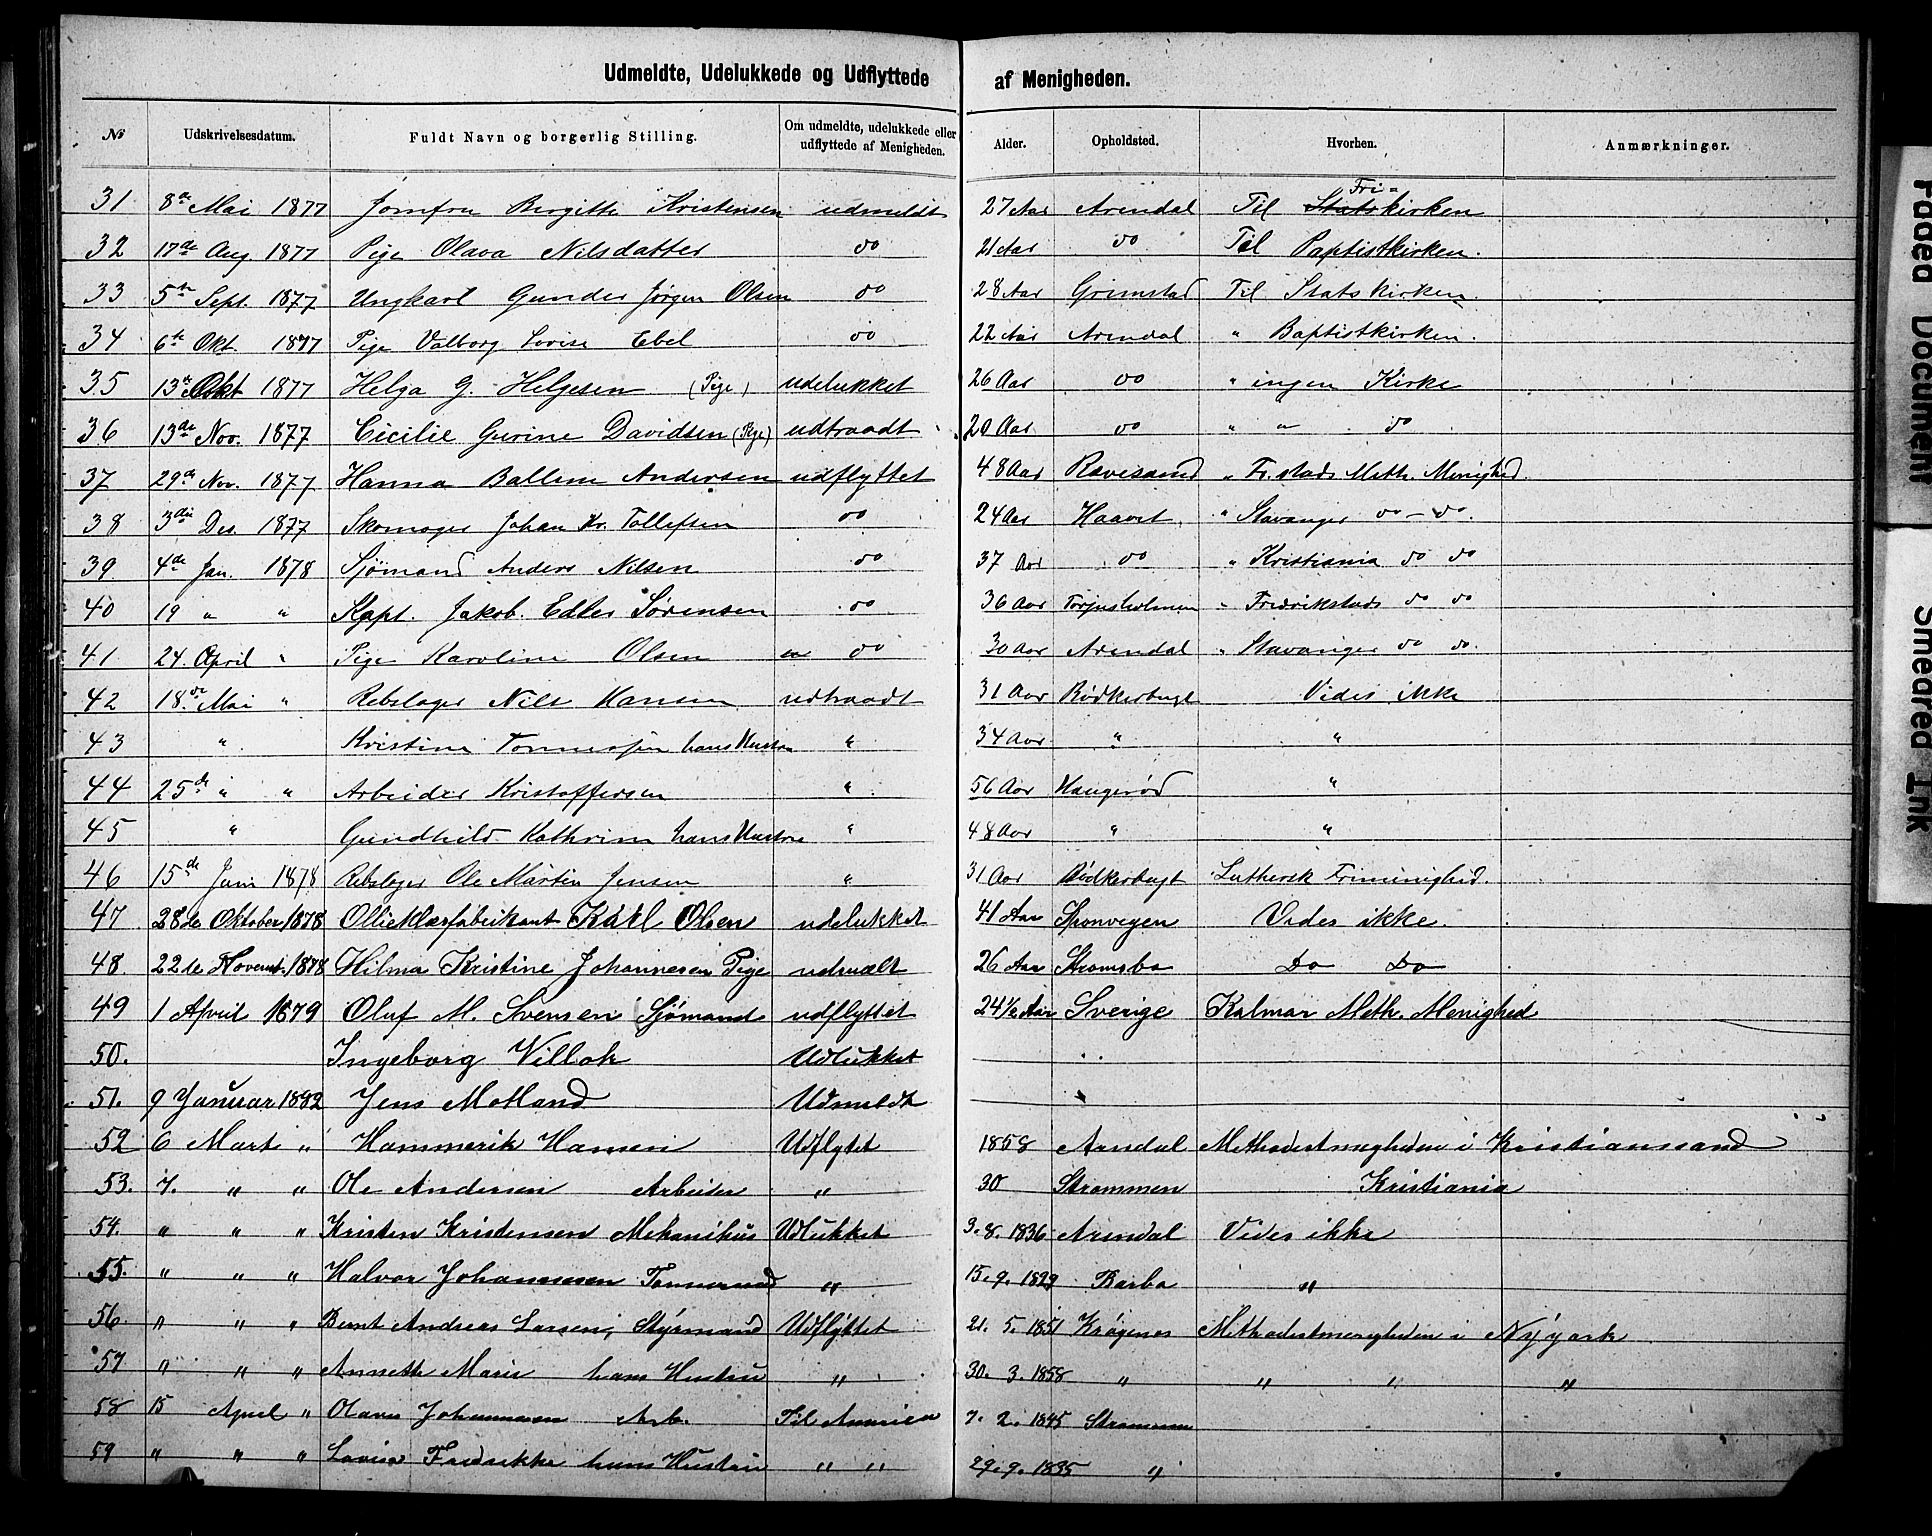 Udmeldte, Udelukkede og Udflyttede af Menigheden.
№ Udskrivelsesdatum. Fuldt Navn og borgerlig Stilling. Om udmeldte, udelukkede eller udflyttede af Menigheden. Alder. Opholdsted. Hvorhen. Anmærkninger.
Fri-
31 8de Mai 1877 Jomfru Bergitte Kristensen udmeldt 27 Aar Arendal Til Statskirken
32 17de Aug 1877 Pige Olava Nilsdatter do 21 Aar do Til Baptistkirken.
33 5te Sept. 1877 Ungkarl Gunder Jørgen Olsen do 28 Aar Grimstad Til Statskirken.
34 6te Okt. 1877 Pige Valborg Lovise Ebel do 22 Aar Arendal " Baptistkirken.
35 13de Okt 1877 Helga G. Helgesen (Pige) udelukket 26 Aar do " ingen Kirke
36 13de Nov. 1877 Cicilie Gurine Davidsen (Pige) udtraadt 20 Aar do " " do
37 29de Nov. 1877 Hanna Ballene Andersen udflyttet 48 Aar Ravesand " Fr.stads Meth. Menighed.
38 3die Des. 1877 Skomager Johan Kr. Tollefsen do 24 Aar Haavet " Stavanger do - do.
39 4de Jan. 1878 Sjømand Anders Nilsen do 37 Aar do " Kristiania do do
40 19 " " Kapt. Jakob Edler Sørensen do 36 Aar Torjusholmen " Fredrikstads do do
41 24. April " Pige Karoline Olsen do 30 Aar Arendal " Stavanger do do.
42 18de Mai " Rebslager Nils Hansen udtraadt 31 Aar Bødkerbugt Vides ikke
43 " Kristine Tonnesen hans Hustru " 34 Aar " "
44 25de " " Arbeider Kristoffersen " 56 Aar Haugerød "
45 " Gundhild Kathrine hans Hustru " 48 Aar " "
46 15de Juni 1878 Rebslager Ole Martin Jensen " 31 Aar Bødkerbugt Luthersk Frimenighed.
47 28de Oktober 1878 Ollieklærfabrikant Karl Olsen udelukket 41 Aar Vides ikke.
48 22de Novemb. 1878 Hilma Kristine Johannesen Pige udmælt 26 Aar Stromsbo Do Do
49 1 April 1879 Oluf M. Svensen Sjømand udflyttet 24 1/2 Aar Sverige Kalmar Meth. Menighed
50. Ingeborg Villoh Udlukket
51. 9 Januar 1882 Jens Motland Udmeldt
52 6 Mart " Hammerik Hansen Udflytet 1858 Arndal Methodistmegheden i Kristianssand
53. 7. " " Ole Andersen Arbeider " 30 Strammen Kristiania
54. " " " Kristen Kristensen Mekanikus Udlukket 3. 8. 1836 Arendal Vides ikke
55. " " " Halvor Johannesen Tømmermand " 15. 9. 1829 Barbo "
56. " " " Bernt Andreas Larsen, Styrmand Udflyttet 21. 5. 1851 Krøgenes Methodestmenigheden i Nyyork
57 " " " Annette Marie hans Hustru " 30. 3. 1858 " " " "
58 15 April " Olaus Johannesen Arb. Til Amerika 7. 2. 1845 Strammen
59 " " " Lovise Fredrikke hans Hustru " " 29. 9. 1835 "
Faded Document
Smeared Ink